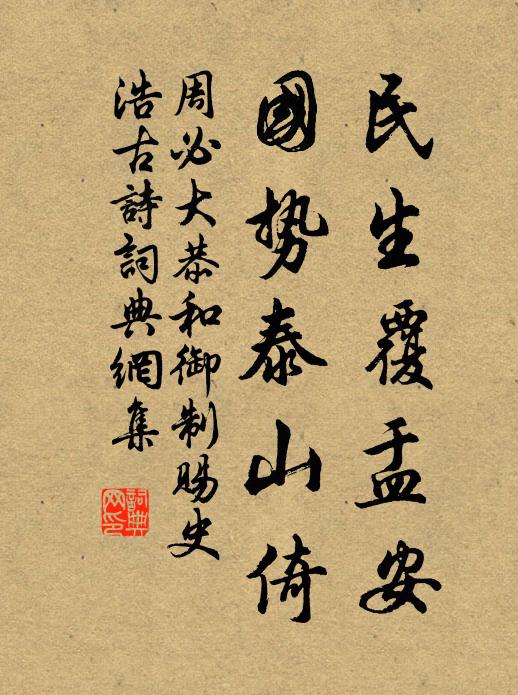 民生覆盂安
國勢泰山倚
周必大恭和御制賜史
浩古詩詞典網集
詞典網印